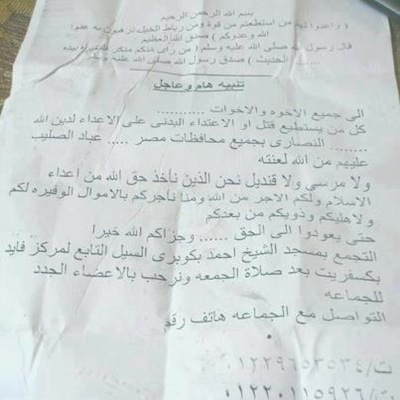 بسم الله الرحمن الرحيم
( واعدوا لهم من استطعتم من قوة ومن رباط الخيل ترهبون به عدوا
الله وعدوكم ) صدق الله العظيم
قال رسول الله صلى الله عليه وسلم ( من رأى منكم منكر فليغيره بيده
......... الحديث ) صدق رسول الله صلى الله عليه وسلم
تنبيه هام وعاجل
الى جميع الاخوه والاخوات .........
كل من يستطيع قتل او الاعتداء البدنى على الاعداء لدين الله
........ النصارى بجميع محافظات مصر ..... عباد الصليب
عليهم من الله لعنته
ولا مرسى ولا قنديل نحن الذين نأخذ حق الله من اعداء
الاسلام ولكم الاجر من الله ومنا نأجركم بالاموال الوفيره لكم
ولاهليكم وذويكم من بعدكم
حتى يعودوا الى الحق ...... وجزاكم الله خيرا
التجمع بمسجد الشيخ احمد بكوبرى السيل التابع لمركز فايد
بكسفريت بعد صلاة الجمعه ونرحب بالاعضاء الجدد
للجماعه
التواصل مع الجماعه هاتف رقم
ت/٠١٢٢٩٦٥٣٥٣٤
ت/٠١٢٢٠١١٥٩٢٦